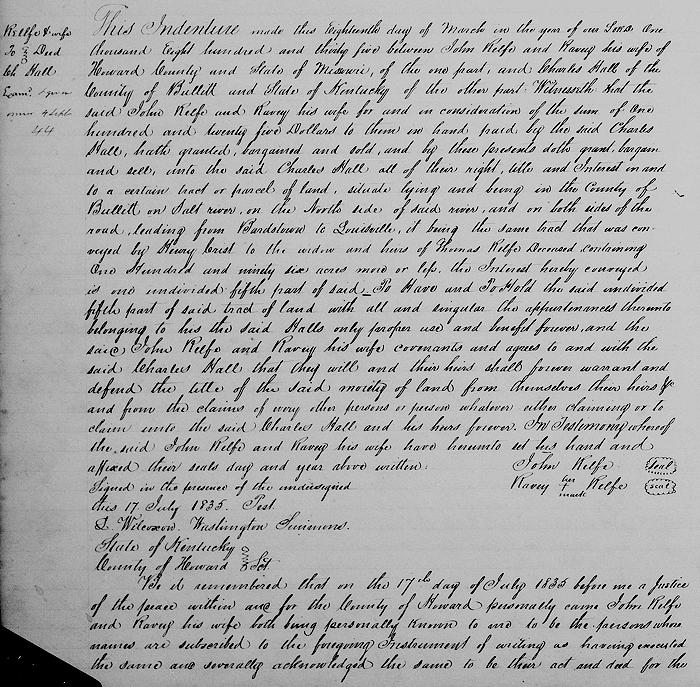 Relfe & wife
To Deed
Ch Hall
Examd
44
This Indenture made this Eighteenth day of March in the year of our Lord One
thousand Eight hundred and thirty five between John Relfe and Ravey his wife of
Howard County and State of Missouri, of the one part, and Charles Hall of the
County of Bullitt and State of Kentucky of the other part Witnesseth that the
said John Relfe and Ravey his wife for and in consideration of the sum of One
hundred and twenty five Dollars to them in hand paid by the said Charles
Hall, hath granted, bargained and sold, and by these presents doth grant, bargain
and sell, unto the said Charles Hall all of their right, title and Interest in and
to a certain tract or parcel of land, situate lying and being in the County of
Bullitt on Salt river, on the North side of said river, and on both sides of the
road, leading from Bardstown to Louisville, it being the same tract that was con-
veyed by Henry Crist to the widow and heirs of Thomas Relfe Deceased containing
One Hundred and ninety six acres more or less. the Interest hereby conveyed
is one undivided fifth part of said - To Have and To Hold the said undivided
fifth part of said tract of land with all and singular the appurtenances thereunto
belonging to his the said Halls only proper use and benefit forever, and the
said John Relfe and Ravey his wife covenants and agrees to and with the
said Charles Hall that they will and their heirs shall forever warrant and
defend the title of the said moiety of land from themselves their heirs &c
and from the claims of every other persons or person whatever either claiming or to
claim unto the said Charles Hall and his heirs forever. In Testimony whereof
the, said John Relfe and Ravey his wife have hereunto set his hand and
affixed their seals day and year above written.
John Relfe seal
Ravey her + mark Relfe seal
Signed in the presence of the undersigned
this 17 July 1835. Test
L. Wilcoxow. Washington Simmons.
State of Kentucky
County of Howard Sct
Be it remembered that on the 17th day of July 1835 before me a Justice
of the peace within and for the County of Howard personally came John Relfe
and Ravey his wife both being personally known to me to be the persons whose
names are subscribed to the foregoing Instrument of writing as having executed
the same and severally acknowledged the same to be their act and deed for the